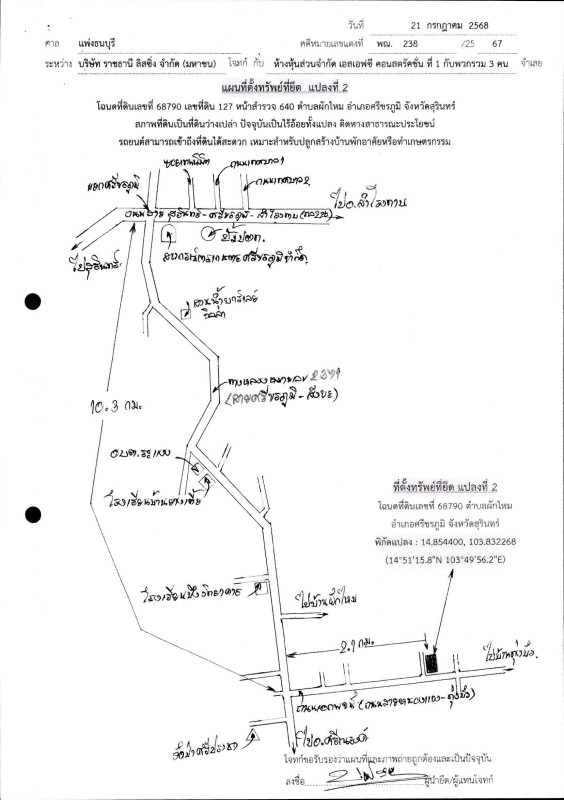 วันที่ 21 กรกฎาคม 2568
ศาล แพ่งธนบุรี คดีหมายเลขแดงที่ พณ. 238 /25 67
ระหว่าง บริษัท ราชธานี ลิสซิ่ง จำกัด (มหาชน) โจทก์ กับ ห้างหุ้นส่วนจำกัด เอสเอฟซี คอนสตรัคชั่น ที่ 1 กับพวกรวม 3 คน จำเลย
แผนที่ตั้งทรัพย์ที่ยึด แปลงที่ 2
โฉนดที่ดินเลขที่ 68790 เลขที่ดิน 127 หน้าสำรวจ 640 ตำบลผักไหม อำเภอศรีขรภูมิ จังหวัดสุรินทร์
สภาพที่ดินเป็นที่ดินว่างเปล่า ปัจจุบันเป็นไร่อ้อยทั้งแปลง ติดทางสาธารณะประโยชน์
รถยนต์สามารถเข้าถึงที่ดินได้สะดวก เหมาะสำหรับปลูกสร้างบ้านพักอาศัยหรือทำเกษตรกรรม
ถนนเทศบาล 1
ถนนเทศบาล 2
แยกศรีขรภูมิ
ไปอ.สำโรงทาบ
ถนนสาย สุรินทร์-ศรีขรภูมิ-สำโรงทาบ
ปั๊มปตท.
ไปสุรินทร์
สหกรณ์การเกษตรศรีขรภูมิจำกัด
ทางหลวงหมายเลข 2371
(สายศรีขรภูมิ-สังขะ)
10.3 กม.
อบต.ระแงง
ที่ตั้งทรัพย์ที่ยึด แปลงที่ 2
โฉนดที่ดินเลขที่ 68790 ตำบลผักไหม
อำเภอศรีขรภูมิ จังหวัดสุรินทร์
พิกัดแปลง : 14.854400, 103.832268
(14°51'15.8"N 103°49'56.2"E)
ไปบ้านผักไหม
2.1 กม.
ไปอ.ศรีณรงค์
โจทก์ขอรับรองว่าแผนที่และภาพถ่ายถูกต้องและเป็นปัจจุบัน
ลงชื่อ ผู้นำยึด/ผู้แทนโจทก์